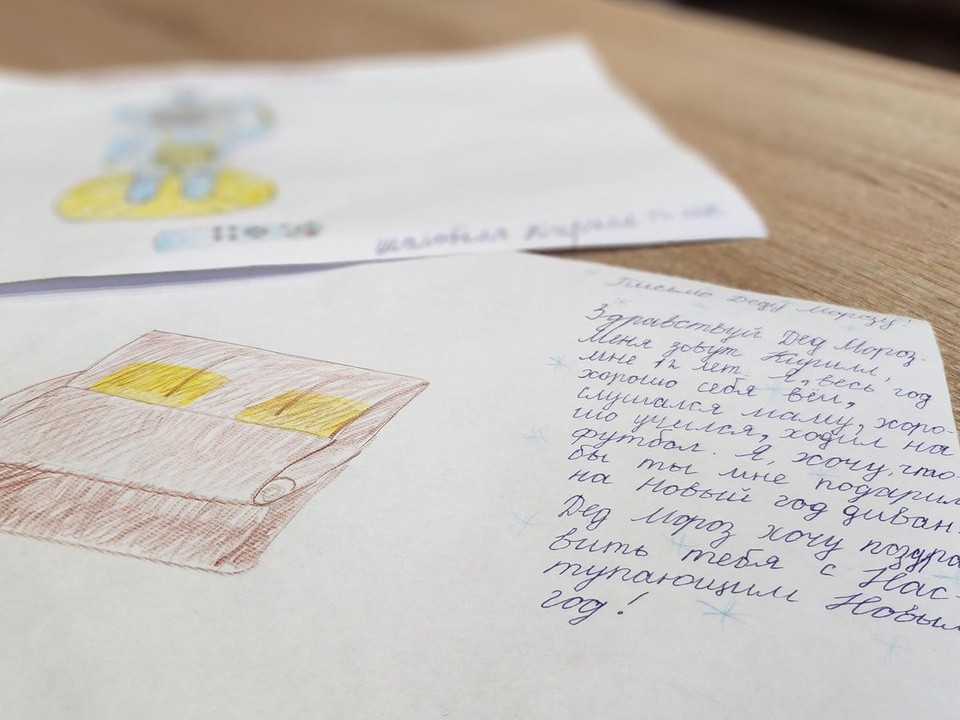 Письмо Деду Морозу!
Здравствуй Дед Мороз.
Меня зовут Кирилл,
мне 12 лет. Я, весь год
хорошо себя вёл,
слушался маму, хоро-
шо учился, ходил на
футбол. Я, хочу, что-
бы ты мне подарил
на Новый год диван.
Дед Мороз хочу поздра
вить тебя с Нас-
тупающим Новым
год!